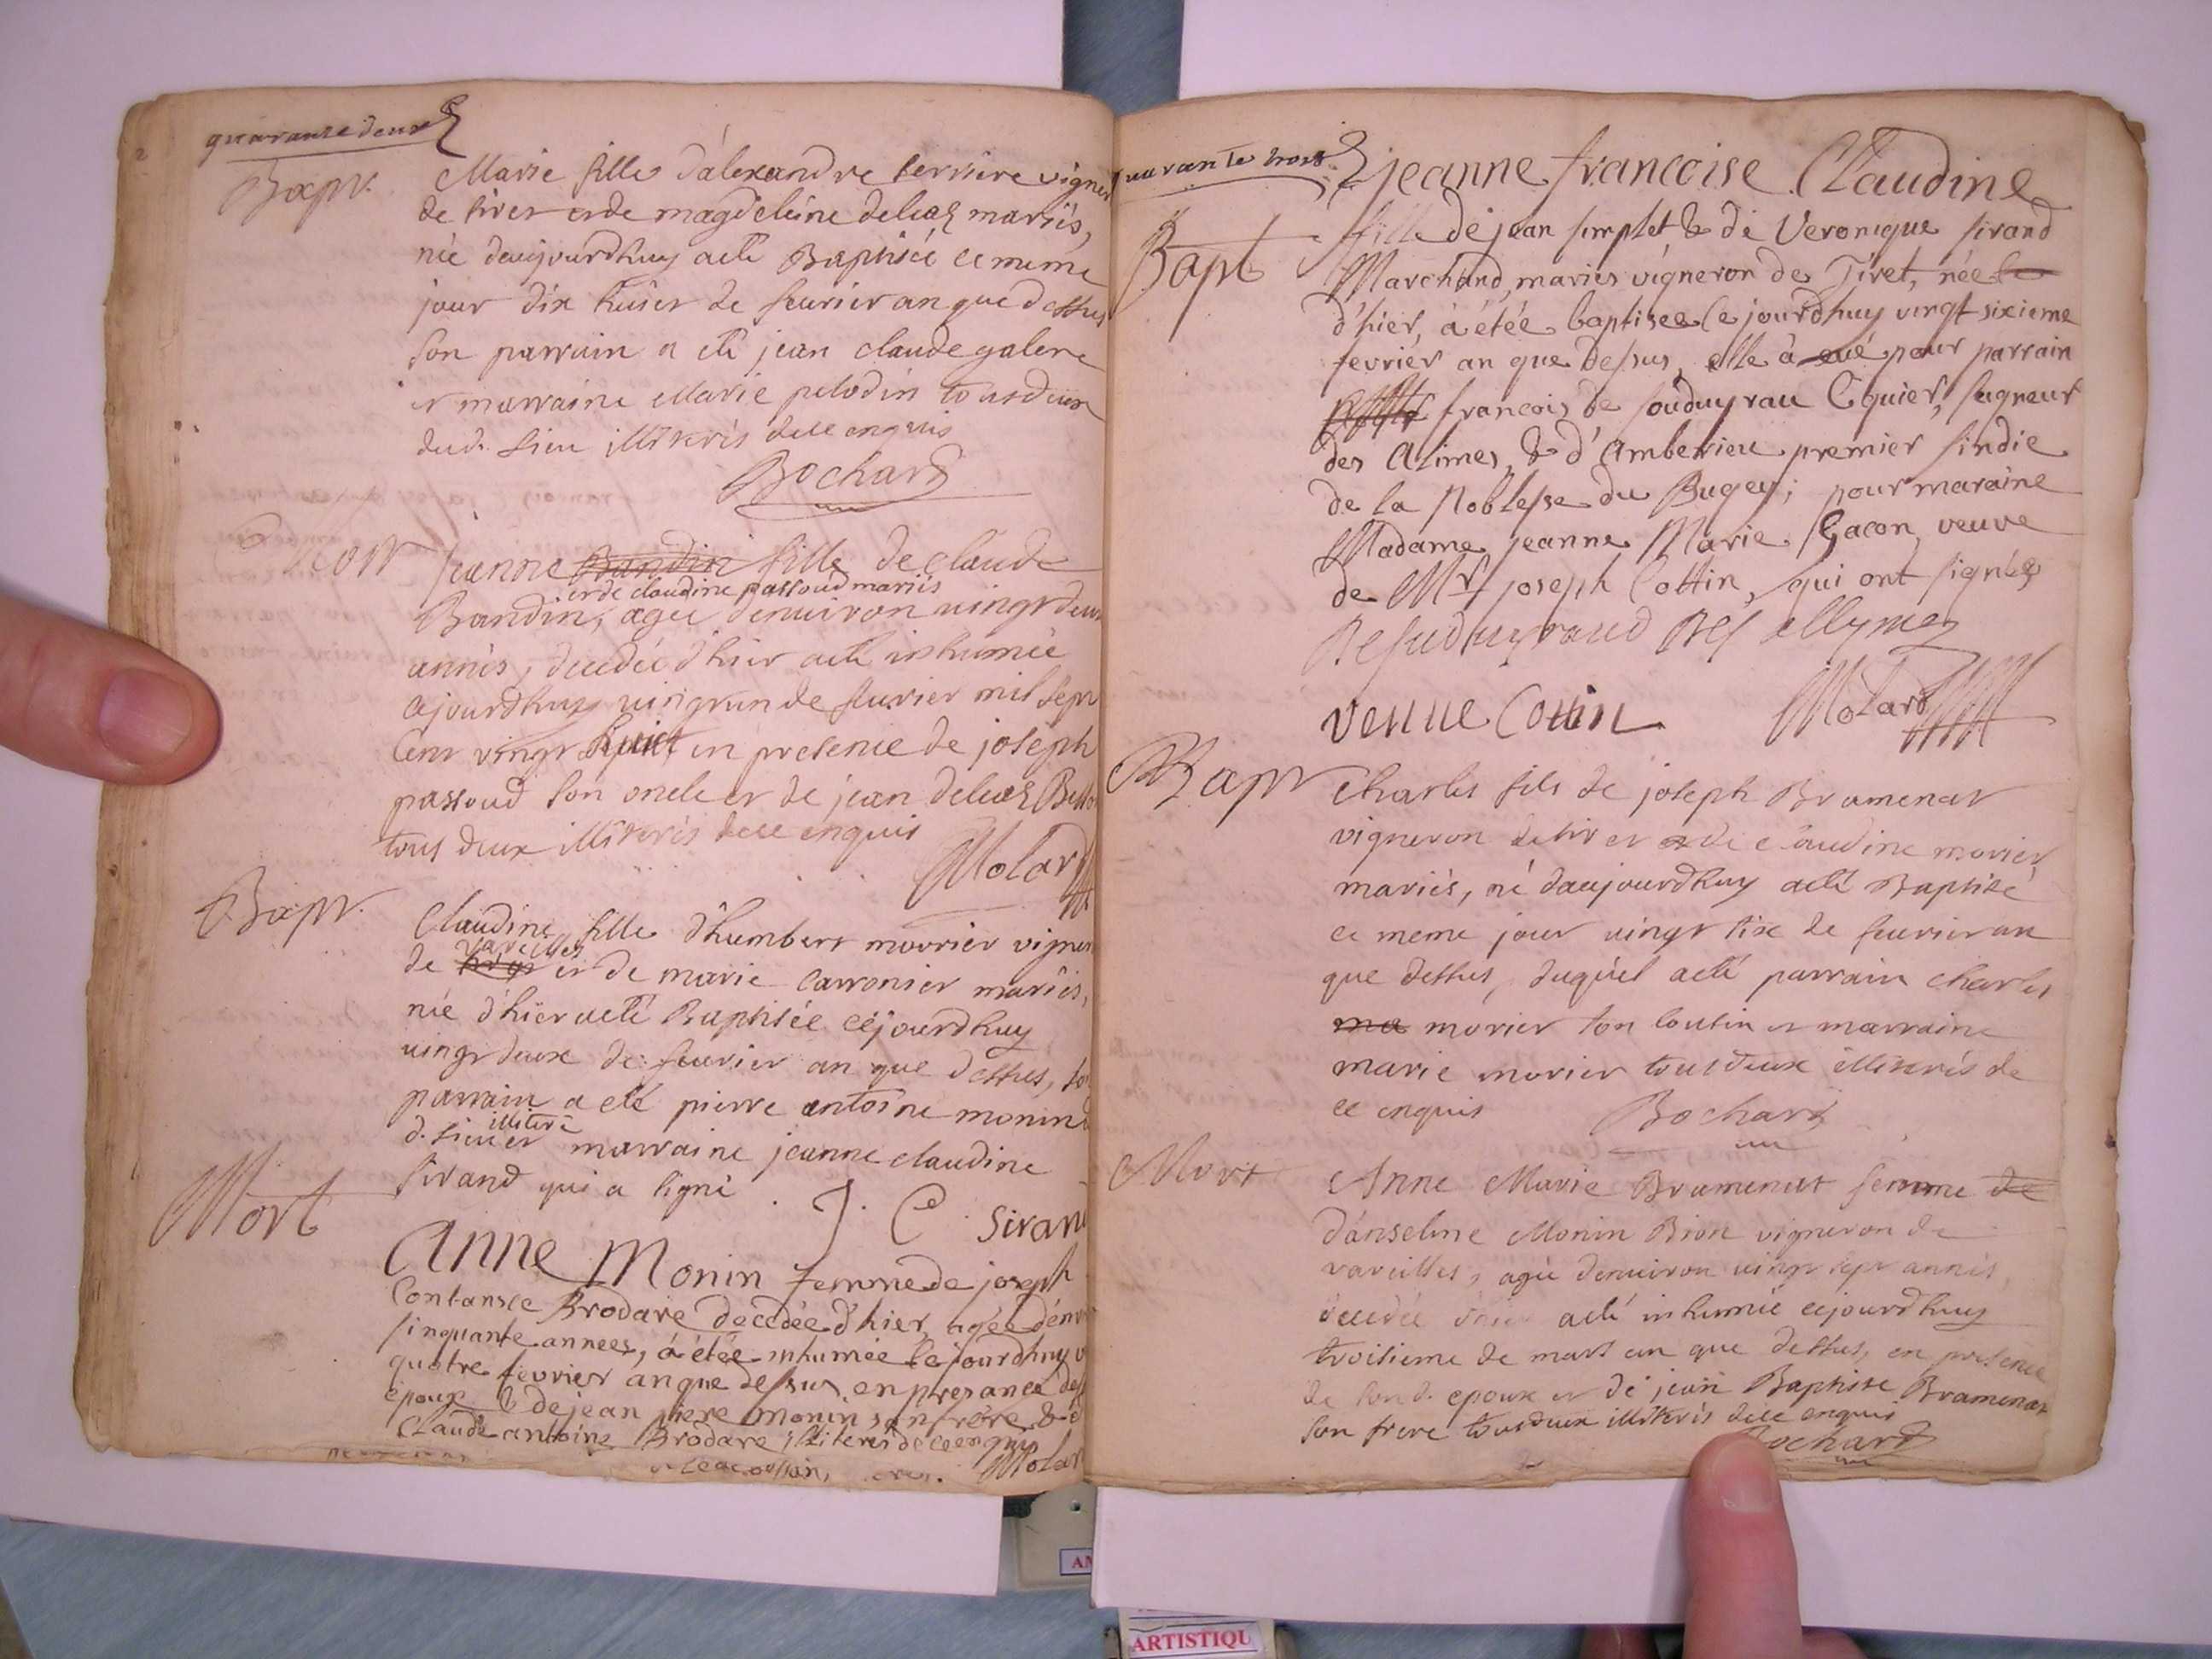 quarante deux
Bapt.
Marie fille d'alexandre serriere vigner
de tiret et de magdeleine deleaz mariés,
née daujourdhuy a eté Baptisée ce meme
jour dix huict de feurier an que dessus
son parrain a eté jean claude galere
et marraine Marie pelodin tousdeux
dud. lieu illiterés dece enquis
Bochard
Mort
jeanne Bandin fille de claude
et de claudine passoud mariés
Bandin, agée denuiron uingt deux
annés, decedée d'hier a eté inhumée
ajourdhuy uingt un de feurier mil sept
Cent vingt huict en presence de joseph
passoud son oncle et de jean deleaz
tous deux illiterés dece enquis
Molard
Bapt.
Claudine fille d'humbert mourier vigner
vareilles
de tiret et de marie carronier mariés,
née d'hier a eté Baptisée cejourdhuy
uingt deux de feurier an que dessus, son
parrain a eté pierre antoine monin d
illiteré
d. lieu et marraine jeanne claudine
sirand qui a signé
J. C. Siran
Mort
Anne Monin femme de joseph
Constance Brodare decedée d'hier, agée d'env
sinquante années, á étée inhumée ce jourdhuy v
quatre fevrier an que dessus, en presance de s
epoux & de jean piere monin son frére & d
Claude antoine Brodare illiterés de ce enquis
Molar
quarante trois
Bapt
jeanne francoise Claudine
fille de jean simplet & de Veronique sirand
Marchand, mariés vigneron de Tiret, née le
d'hier, á étée baptisee ce jourdhuy vingt sixieme
fevrier an que dessus, elle à eué pour parrain
francois de souduyrau Equier, segneur
des Alimes, & d'Amberieu premier sindic
de la Noblesse du Bugey; pour maraine
Madame jeanne Marie Gacon veuve
de Mr joseph Cottin, qui ont signés
De suduyraud Des allymes
Venue Cottin
Molard
Bapt
Charles fils de joseph Bramenat
vigneron de tiret et de claudine morier
mariés, né daujourdhuy a eté Baptisé
ce meme jour uingt six de feurier an
que dessus, duquel a eté parrain charles
ma morier son cousin et marraine
marie morier tousdeux illiterés de
ce enquis
Bochard
Mort
Anne Marie Bramenat femme de
d'anselme Monin Bion vigneron de
vareilles, agée denuiron uingt sept annés
decedée d'hier a eté inhumée cejourdhuy
troisieme de mars an que dessus, en presence
de son d. epoux et de jean Baptiste Bramenat
son frere tousdeux illiterés dece enquis
Bochard
ARTISTIQU